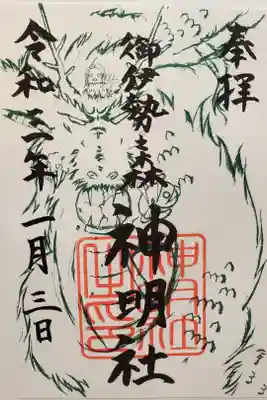 奉拝
御伊勢森
神明社
令和三年一月三日